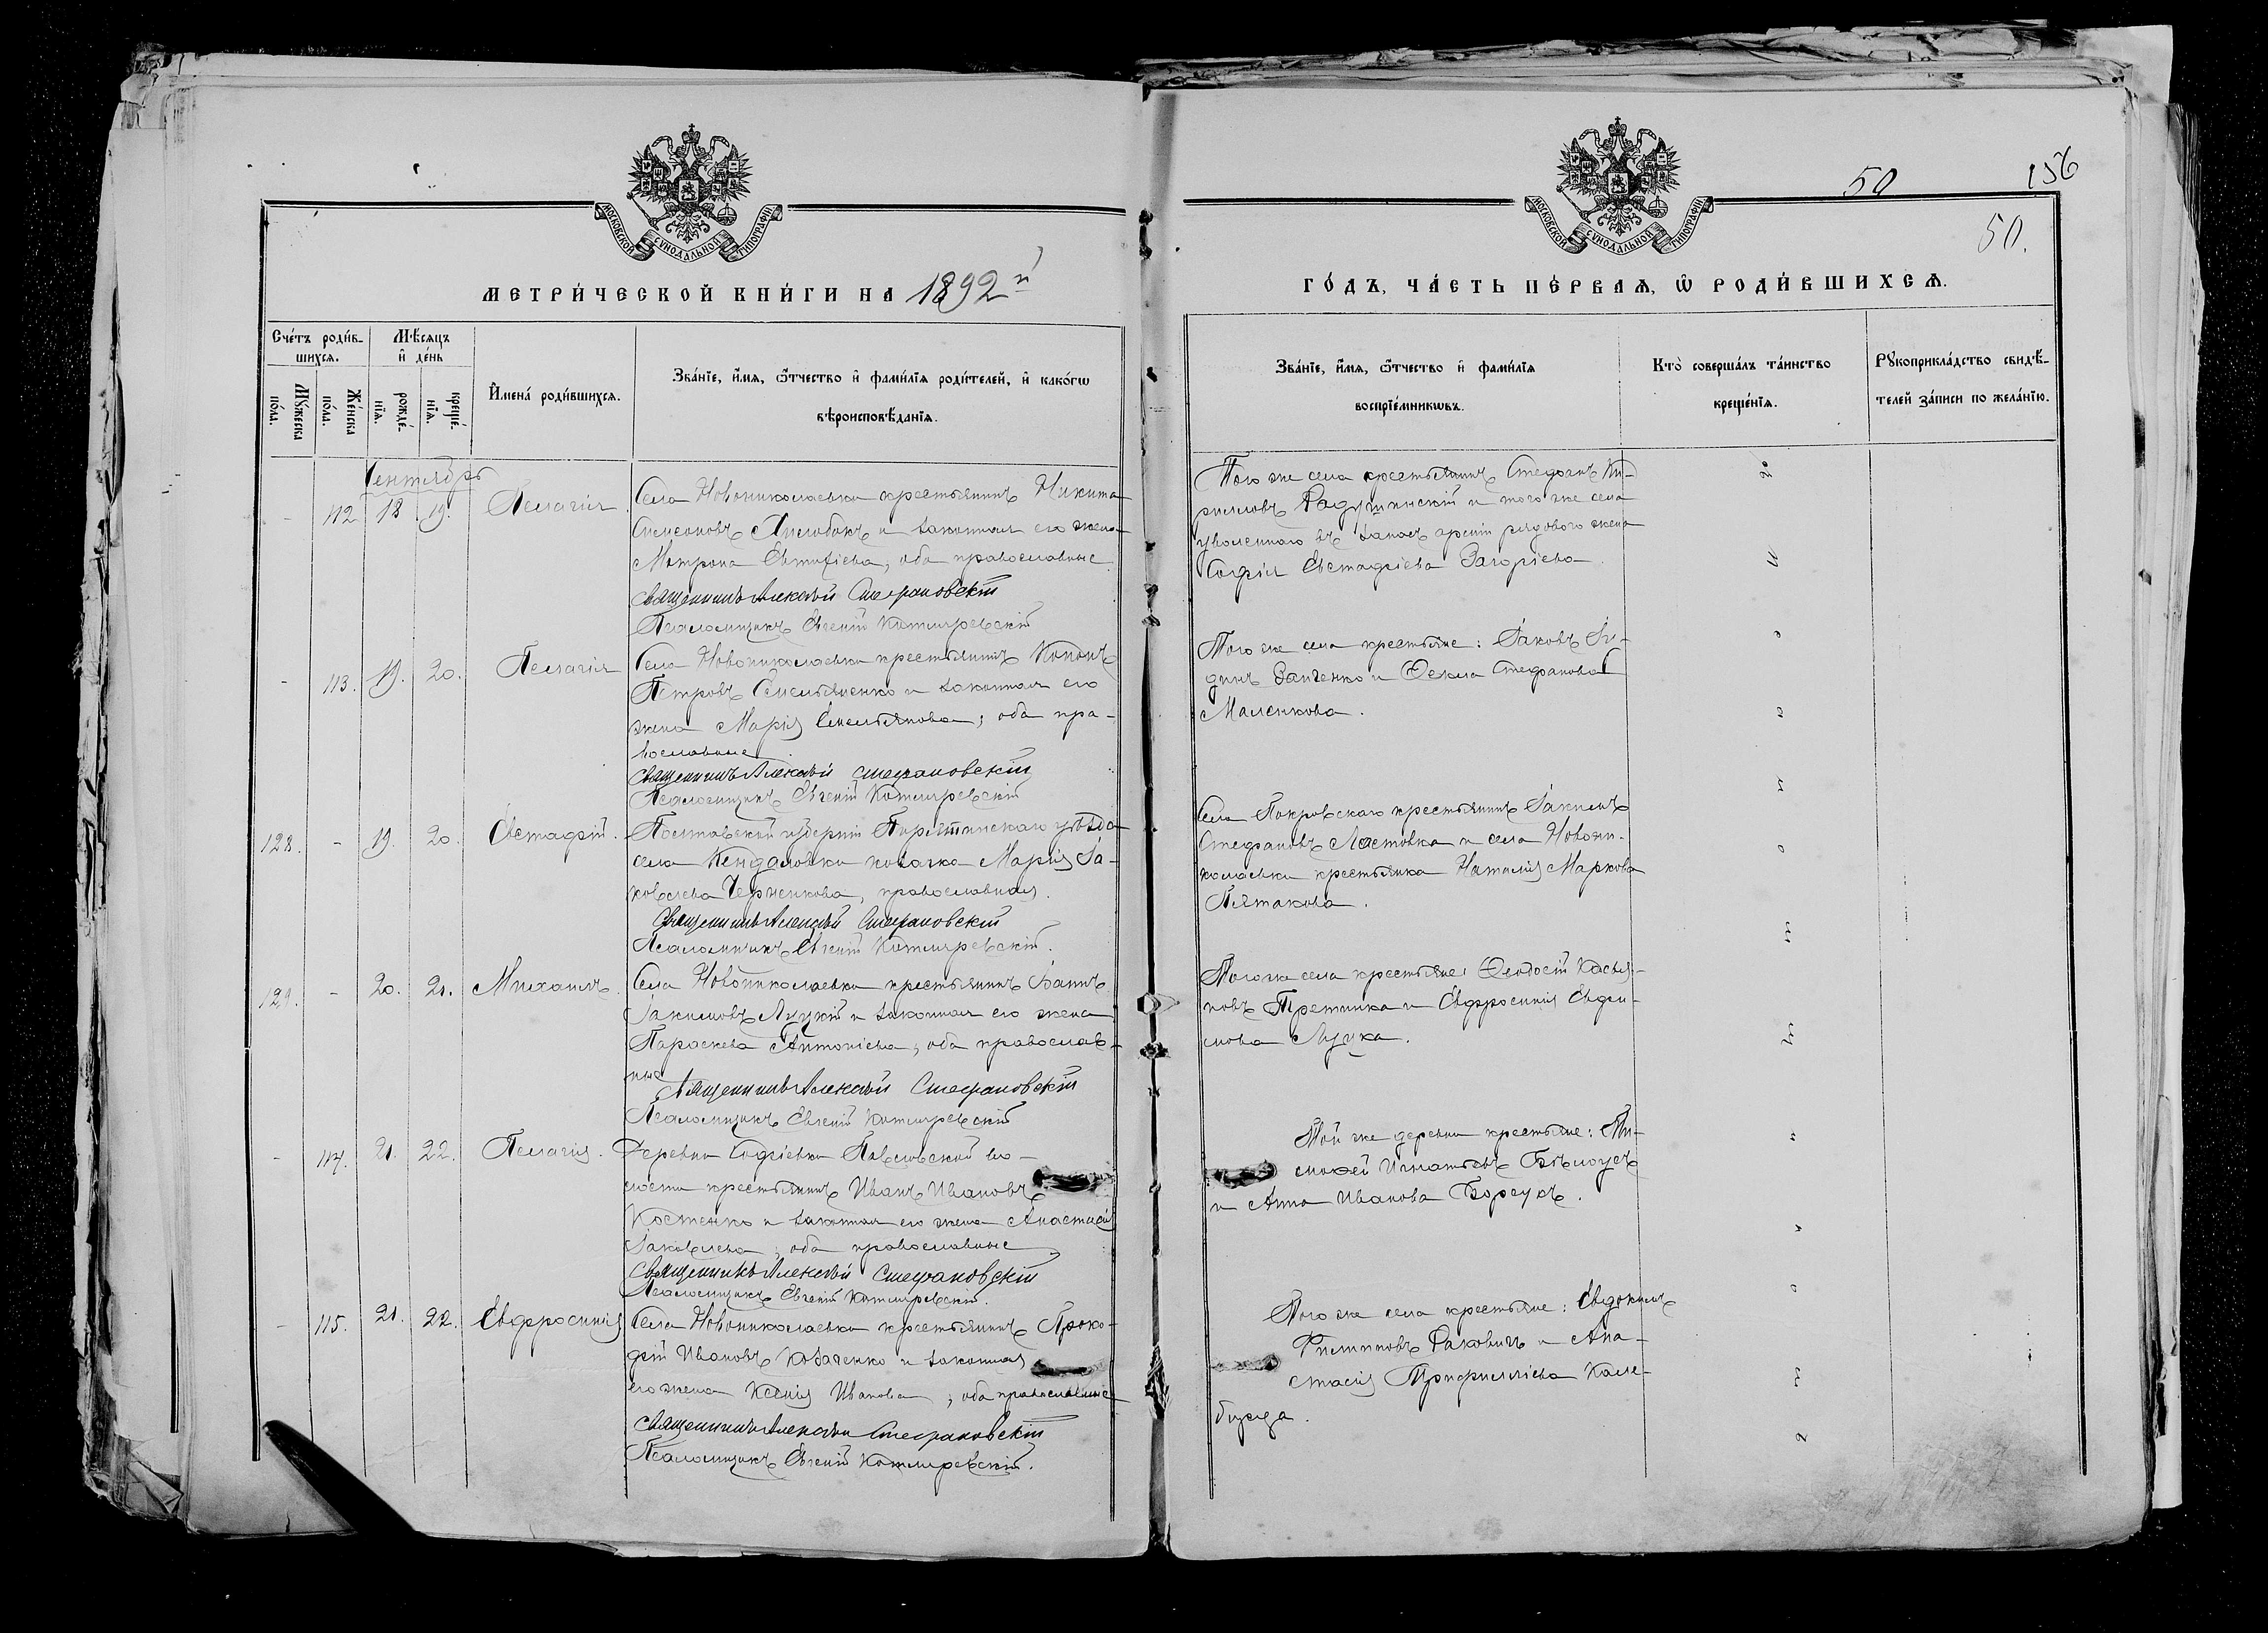 МОСКОВСКОЙ СѴНОДАЛЬНОЙ ТИПОГРАФІИ
МЕТРИ́ЧЕСКОЙ КНИ́ГИ НА 1892 й
Сче́тъ роди́вшихся.
Мꙋ́жеска по́ла.
Же́нска по́ла.
Мѣ́сяцъ и҆ де́нь
рожде́нїѧ.
креще́нїѧ.
И҆мена̀ роди́вшихсѧ.
Зва́нїе, и҆́мѧ, ѻ҆́тчество и҆ фами́лїѧ роди́телей, и҆ како́гѡ
вѣроисповѣ́данїѧ.
Сентябрь
- 112 18 19. Пелагія.
Села Новониколаевки крестьянинъ Никита
Симеоновъ и законная его жена
Матрона Евтихіева, оба православные.
Священникъ Алексѣй Стефановскій
Псаломщикъ Евгеній Котляревскій
- 113. 19. 20. Пелагія
Села Новониколаевки крестьянинъ Кононъ
Петровъ Емельяненко и законная его
жена Марія Емельянова; оба пра-
вославные
Священникъ Алексѣй Стефановскій
Псаломщикъ Евгеній Котляревскій
128. - 19. 20. Евстафій.
Полтавской губерніи Пирятинскаго уѣзда
села козачка Марія Іа-
ковлева Черненкова, православная.
Священникъ Алексѣй Стефановскій
Псаломщикъ Евгеній Котляревскій.
129. - 20. 21. Михаилъ.
Села Новониколаевки крестьянинъ Іоаннъ
Іакимовъ Луцкій и законная его жена
Параскева Антоніева; оба православ-
ные
Священникъ Алексѣй Стефановскій
Псаломщикъ Евгеній Котляревскій
- 114. 21. 22. Пелагія.
Деревни Софіевки Павловской во-
лости крестьянинъ Иванъ Ивановъ
Костенко и законная его жена Анастасія
Іаковлева, оба православные
Священникъ Алексѣй Стефановскій
Псаломщикъ Евгеній Котляревскій.
- 115. 21. 22. Евфросинія
Села Новониколаевки крестьянинъ Проко-
фій Ивановъ Козаченко и законная
его жена Ксенія Иванова; оба православные
Священникъ Алексѣй Стефановскій
Псаломщикъ Евгеній Котляревскій.
МОСКОВСКОЙ СѴНОДАЛЬНОЙ ТИПОГРАФІИ
50 156
50.
ГО́ДЪ, ЧА́СТЬ ПЕ́РВАѦ, Ѡ҆ РОДИ́ВШИХСѦ.
Зва́нїе, и҆́мѧ, ѻ҆́тчество и҆ фами́лїѧ
воспрїе́мникѡвъ.
Кто̀ соверша́лъ та́инство
креще́нїѧ.
Рꙋкоприкла́дство свидѣ́-
телей за́писи по жела́нїю.
Того же села крестьянинъ Стефанъ Ки-
рилловъ Радушинскій и того же села
уволеннаго въ запасъ арміи рядового жена
Софія Евстафіева
Того же села крестьяне: Іаковъ
Занченко и Ѳекла Стефанова
Маленкова.
Села Покровскаго крестьянинъ Іакимъ
Стефановъ Ластовка и села Новони-
колаевки крестьянка Наталія Маркова
Пятакова.
Того же села крестьяне: Ѳеодосій Касья-
новъ Третинка и Евфросинія Евфи-
мова Луцка.
Той же деревни крестьяне: Ти-
моѳей Игнатьевъ Бѣлоусъ
и Анна Иванова Борсукъ.
Того же села крестьяне: Евдокимъ
Филипповъ Раковичъ и Ана-
стасія Трифилліева Кале-